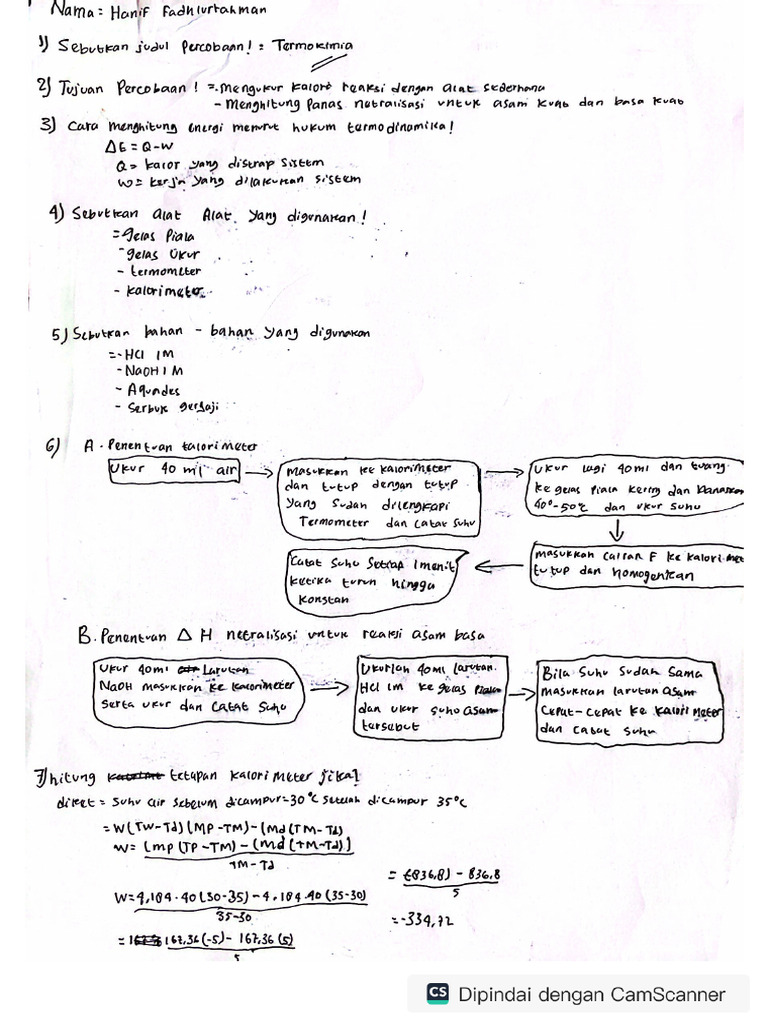 Nama : Hanif Fadhlurrahman
1) Sebutkan judul Percobaan! : Termokimia
2) Tujuan Percobaan ! = - Mengukur kalore reaksi dengan alat sederhana
- Menghitung Panas netralisasi untuk asam kuat dan basa kuat
3) Cara menghitung energi menurut hukum termodinamika!
ΔE = Q-W
Q = kalor yang diserap sistem
W = kerja yang dilakukan sistem
4) Sebutkan alat Alat yang digunakan !
= gelas Piala
- gelas Ukur
- termometer
- kalorimeter
5) Sebutkan bahan - bahan yang digunakan
= - HCl 1M
- NaOH 1 M
- Aquades
- Serbuk gergaji
6) A. Penentuan kalorimeter
Ukur 40 ml air
Masukkan ke kalorimeter
dan tutup dengan tutup
yang sudah dilengkapi
Termometer dan catat suhu
Ukur lagi 40ml dan tuang
ke gelas Piala kering dan Panaskan
40°-50°C dan ukur suhu
masukkan cairan F ke kalorimet
tutup dan homogenkan
Catat suhu setiap 1 menit
ketika turun hingga
konstan
B. Penentuan Δ H netralisasi untuk reaksi asam basa
Ukur 40ml Larutan
NaOH masukkan ke kalorimeter
serta ukur dan catat suhu
Ukurlah 40ml larutan
HCl 1M ke gelas Piala
dan ukur suhu asam
tersebut
Bila suhu sudah sama
masukkan larutan asam
cepat-cepat ke kalorimeter
dan catat suhu
7) hitung tetapan kalori meter jika!
diket = suhu air sebelum dicampur = 30°C setelah dicampur 35°C
= W(TW-Td) (MP-TM) - (Md(TM-Td)
W = (mp(TP-TM) - (md(TM-Td))
TM-Td
W = 4,184 . 40 (30-35) - 4,184 . 40 (35-30)
35-30
= 167,36 (-5) - 167,36 (5)
5
= (-836,8) - 836,8
5
= -334,72
CS Dipindai dengan CamScanner